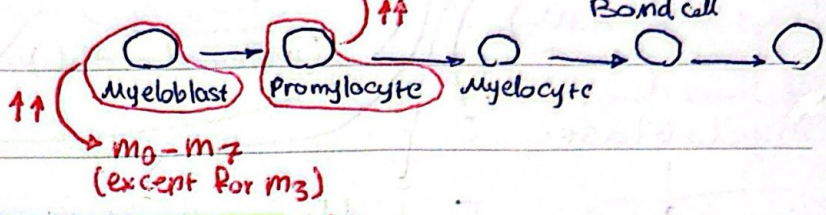 ↑↑
Bond cell
Myeloblast Promylocyte Myelocyte
↑↑
m0-m7
(except for m3)